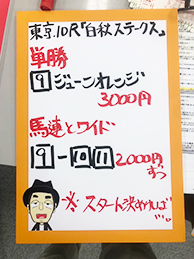 東京10R『白秋ステークス』
単勝
9 ジューンオレンジ
3000円
馬連とワイド
9-10 11 2000円
ずつ
※スタート決めれば…